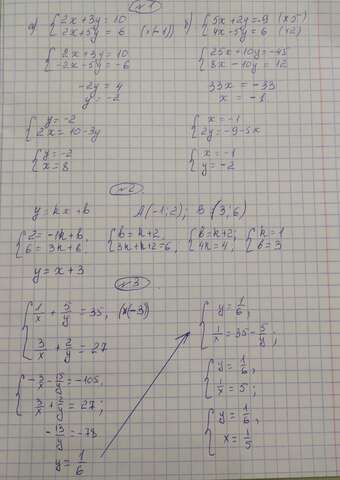 №1
а) { 2x + 3y = 10
2x + 5y = 6 (x(-1))
{ 2x + 3y = 10
-2x - 5y = -6
-2y = 4
y = -2
{ y = -2
2x = 10 - 3y
{ y = -2
x = 8
{ 5x + 2y = -9 (x5)
4x - 5y = 6 (x2)
{ 25x + 10y = -45
8x - 10y = 12
33x = -33
x = -1
{ x = -1
2y = -9 - 5x
{ x = -1
y = -2
№2
y = kx + b A(-1; 2); B(3; 6)
{ 2 = -1k + b { b = k + 2 { b = k + 2; { k = 1
6 = 3k + b; 3k + k + 2 = 6, 4k = 4, b = 3
y = x + 3
№3
{ 1/x + 5/y = 35, (x(-3))
3/x + 2/y = 27
{ -3/x - 15/y = -105,
3/x + 2/y = 27;
-13/y = -78
y = 1/6
{ y = 1/6,
1/x = 35 - 5/y;
{ y = 1/6,
1/x = 5;
{ y = 1/6,
x = 1/5